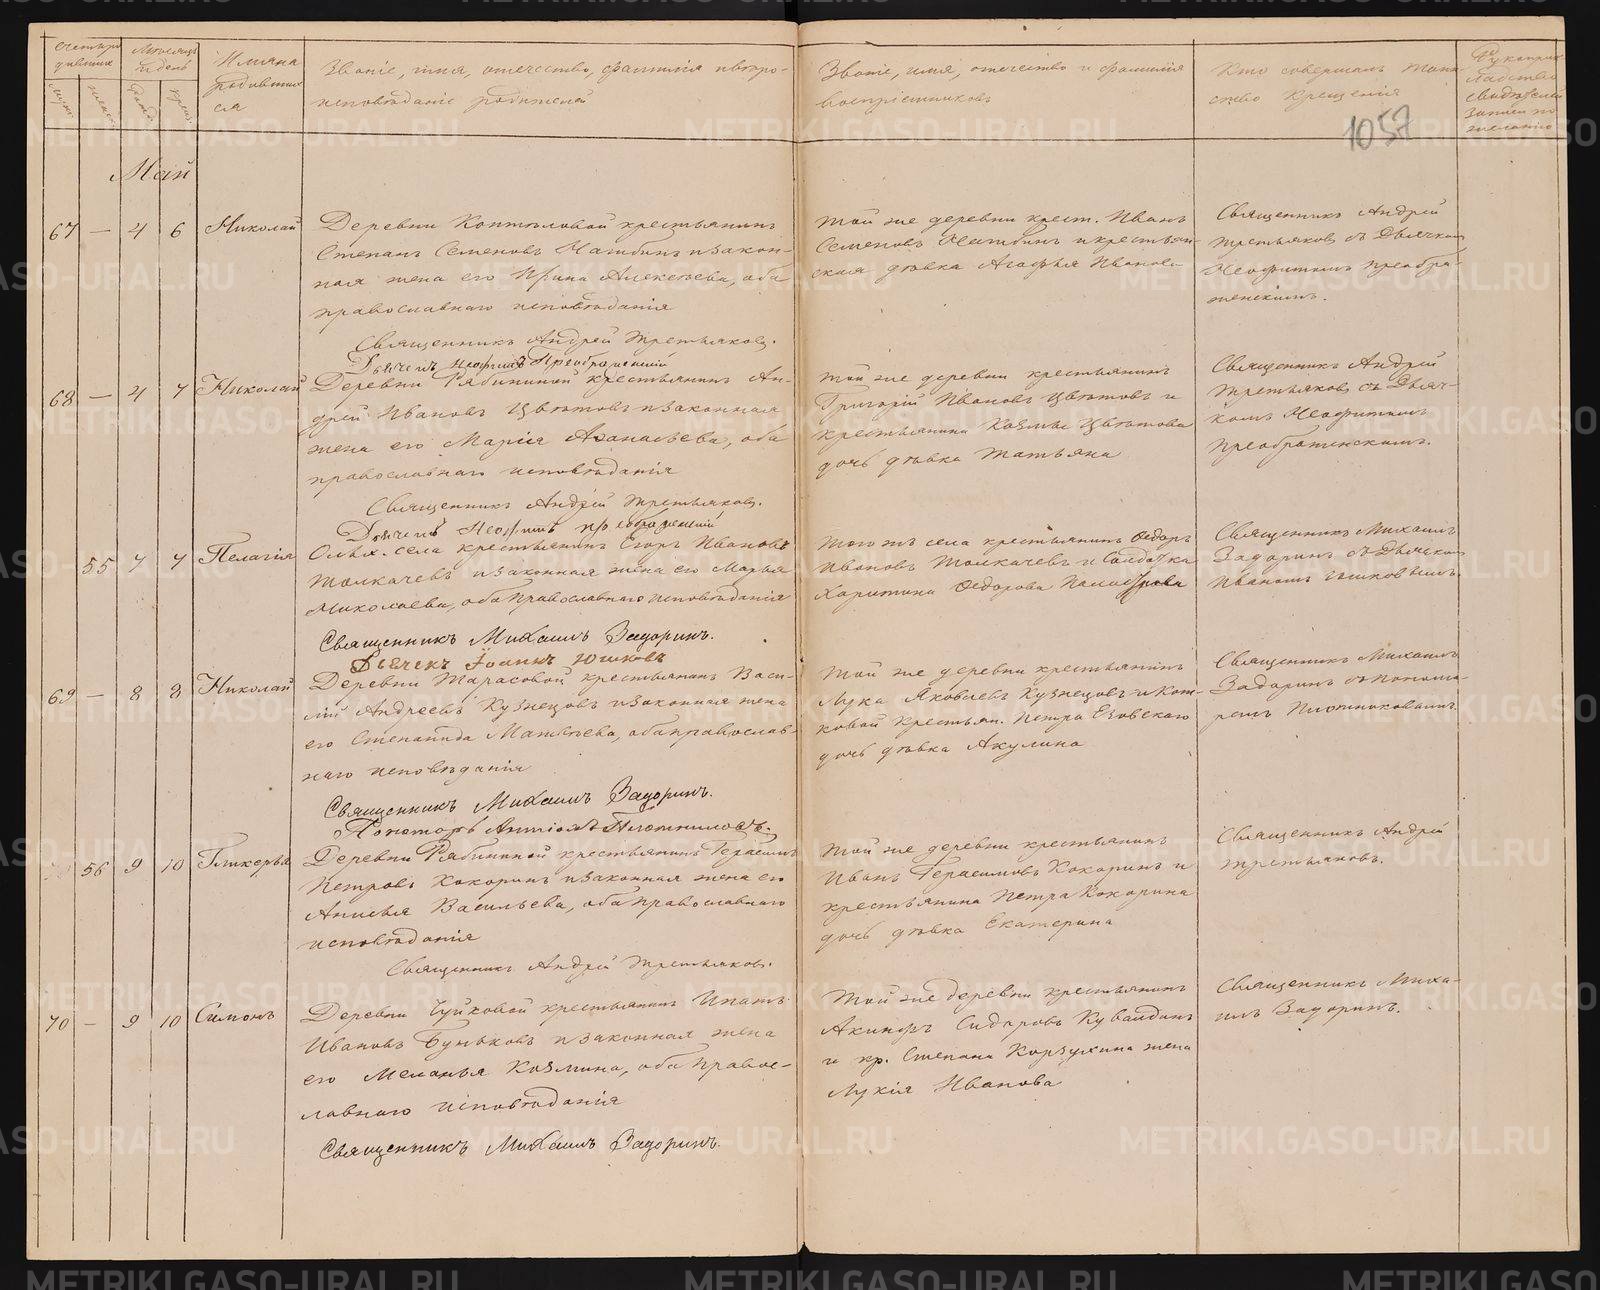 Счетъ ро-
дившихся
Мѣсяцъ
и день
Имяна
родивших
ся
Званіе, имя, отечество, фамилія и вѣро-
исповѣданіе родителей
Званіе, имя, отечество и фамилія
воспріемниковъ
Кто совершалъ таин-
ство крещенія
Рукоприк-
ладство
свидѣтелей
записи по
желанію
1057
Май
67 — 4 6 Николай
Деревни крестьянинъ
Степанъ Семеновъ и закон-
ная жена его Ирина Алексѣева, оба
православнаго исповѣданія
Священникъ Андрей Третьяковъ.
Дьячекъ Неофитъ Преображенскій
Той же деревни крест. Иванъ
Семеновъ и крестьян-
ская дѣвка Агафья Иванова
Священникъ Андрей
Третьяковъ съ Дьячкомъ
Неофитомъ Преобра-
женскимъ.
68 — 4 7 Николай
Деревни Рябининой крестьянинъ Ан-
дрей Ивановъ Цвѣтовъ и законная
жена его Марія Аѳанасьева, оба
православнаго исповѣданія
Священникъ Андрей Третьяковъ.
Дьячекъ Неофитъ Преображенскій
Той же деревни крестьянинъ
Григорій Ивановъ Цвѣтовъ и
крестьянина Козмы Цвѣтова
дочь дѣвка Татьяна
Священникъ Андрей
Третьяковъ съ Дьяч-
комъ Неофитомъ
Преображенскимъ.
55 7 7 Пелагія
села крестьянинъ Егоръ Ивановъ
Толкачевъ и законная жена его Марья
Николаева, оба православнаго исповѣданія
Священникъ Михаилъ Задоринъ.
Дьячекъ Іоаннъ Юшковъ
Того жъ села крестьянинъ Ѳедоръ
Ивановъ Толкачевъ и Солдатка
Харитина Ѳедорова
Священникъ Михаилъ
Задоринъ съ Дьячкомъ
Иваномъ Юшковымъ.
69 — 8 8 Николай
Деревни Тарасовой крестьянинъ Васи-
лій Андреевъ Кузнецовъ и законная жена
его Степанида Матвѣева, оба православ-
наго исповѣданія
Священникъ Михаилъ Задоринъ.
Пономарь Плотниковъ.
Той же деревни крестьянинъ
Лука Яковлевъ Кузнецовъ и
крестьян. Петра
дочь дѣвка Акулина
Священникъ Михаилъ
Задоринъ съ понома-
ремъ Плотниковымъ.
56 9 10 Гликерья
Деревни Рябининой крестьянинъ Герасимъ
Петровъ Кокоринъ и законная жена его
Анисья Васильева, оба православнаго
исповѣданія
Священникъ Андрей Третьяковъ.
Той же деревни крестьянинъ
Иванъ Герасимовъ Кокоринъ и
крестьянина Петра Кокорина
дочь дѣвка Екатерина
Священникъ Андрей
Третьяковъ.
70 — 9 10 Симонъ
Деревни Чуйковой крестьянинъ Ипатъ
Ивановъ Буньковъ и законная жена
его Меланья Козмина, оба право-
славнаго исповѣданія
Священникъ Михаилъ Задоринъ.
Той же деревни крестьянинъ
Акинфъ Сидоровъ
и кр. Степана Корзухина жена
Лукія Иванова
Священникъ Миха-
илъ Задоринъ.
METRIKI.GASO-URAL.RU